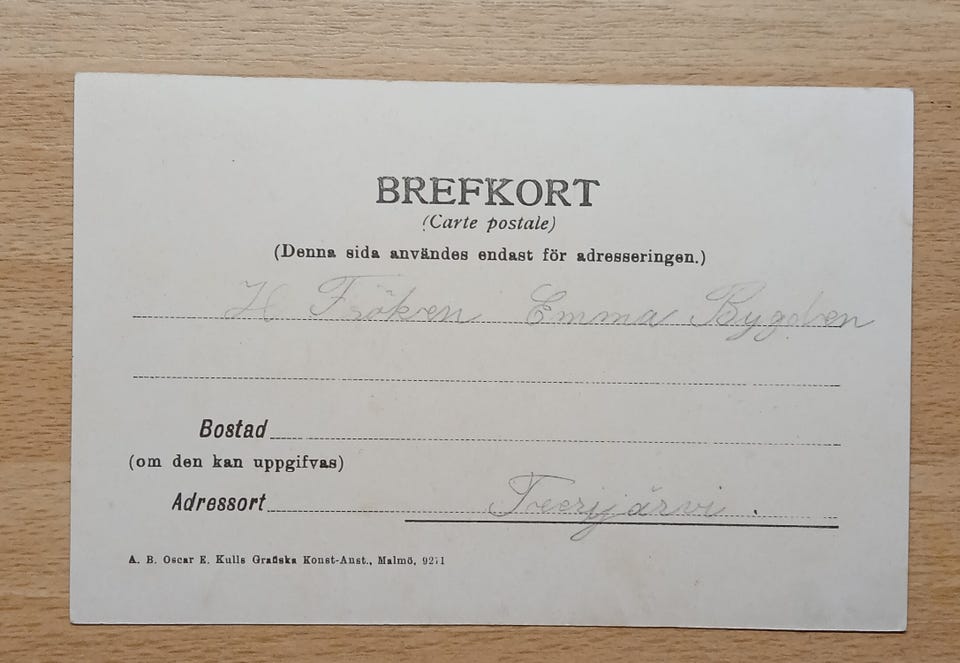 BREFKORT
(Carte postale)
(Denna sida användes endast för adresseringen.)
H Fröken Emma Bygden
Bostad
(om den kan uppgifvas)
Adressort Teerijärvi.
A. B. Oscar E. Kulls Grafiska Konst-Anst., Malmö, 9271